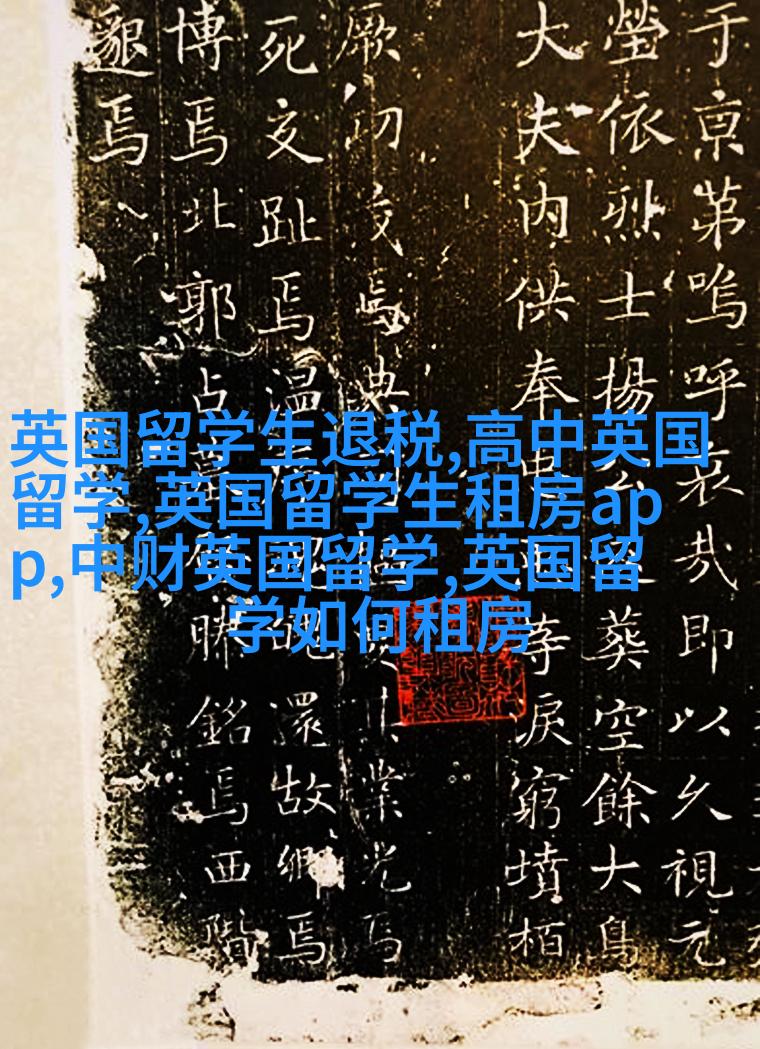 英国留学生退税,高中英国
留学,英国留学生租房ap
p,中财英国留学,英国留
学如何租房
于京第嗚呼哀哉即以久視元
塋依烈士揚葬空餘大鳥
大夫内供奉淚窮墳栢
厥初交焉典業光焉
死交趾焉温還故鄉焉
博焉北郭占銘焉西階
邈焉